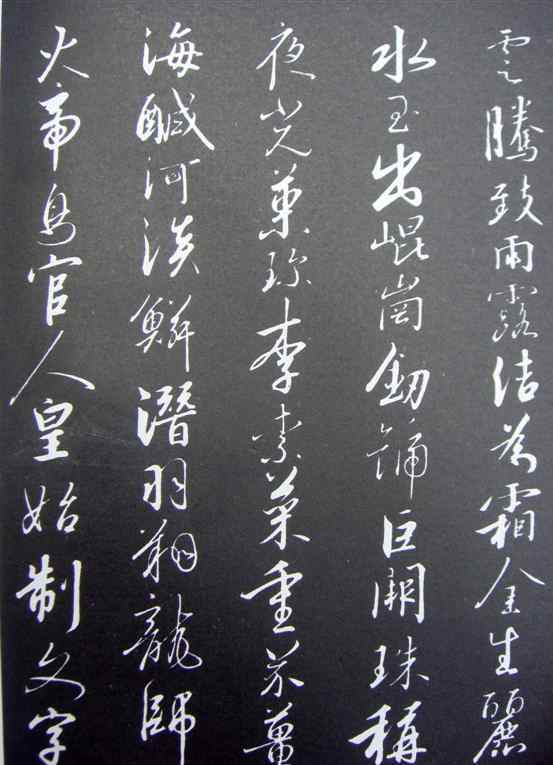 雲騰致雨露結為霜金生麗
水玉出崐崗釼號巨闕珠稱
夜光菓珍李柰菜重芥薑
海醎河淡鱗潛羽翔龍師
火帝鳥官人皇始制文字